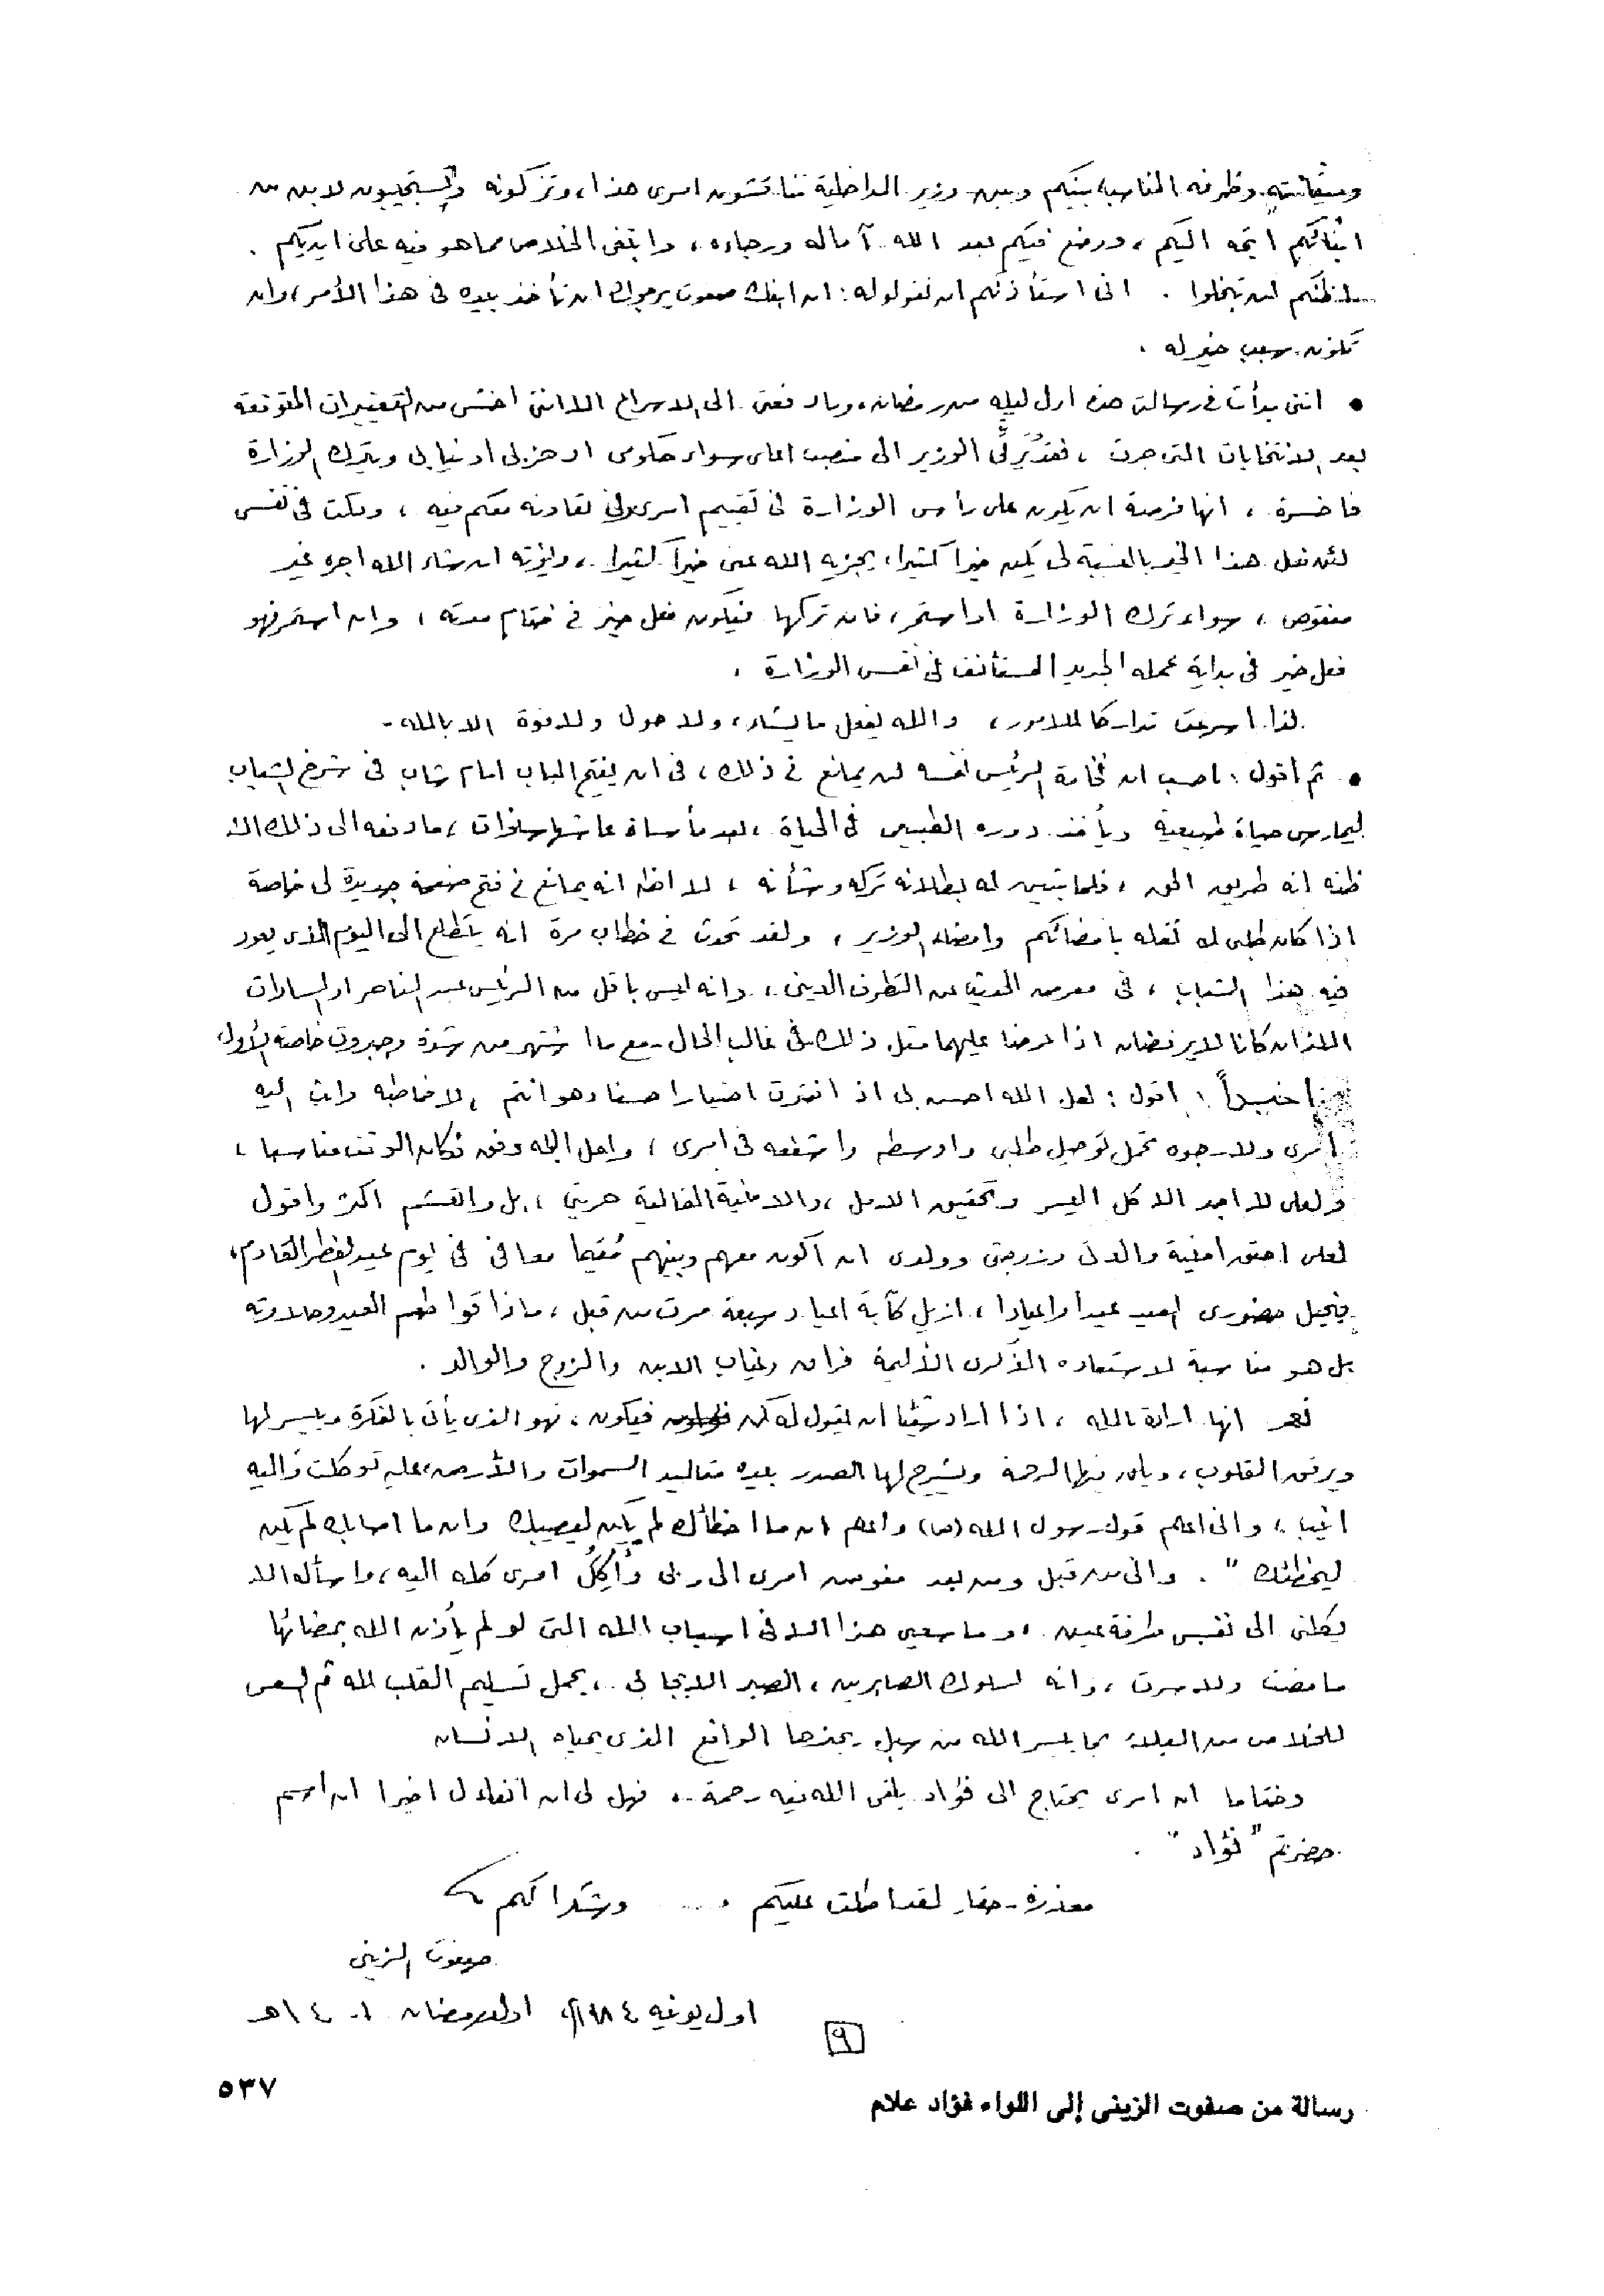 وظرفه المناسبة بينكم وبين وزير الداخلية تناقشون امرى هذا، وتتركونه وتستجيبون لابن من
ابنائكم اتجه اليكم، ووضع فيكم بعد الله آماله ورجاءه، وابتغى الخلاص مما هو فيه على ايديكم .
لن تبخلوا . انى استأذنكم ان تقولوا له : ان ابنك صفوت يرجوك ان تأخذ بيده فى هذا الأمر، وان
تكون سبب خير له .
• اننى بدأت فى رسالتى هذه اول ليله من رمضان، وما دفعنى الى الاسراع الا اننى اخشى من التغييرات المتوقعة
بعد الانتخابات التى جرت ، فقد يُرقَّى الوزير الى منصب اعلى سواء حكومى او حزبى او نيابى ويترك الوزارة
، انها فرصة ان يكون على رأس الوزارة فى تقييم امرى وفى تعاونه معكم فيه ، وقلت فى نفسى
لئن فعل هذا الخير بالنسبة لى يكن خيرا كثيرا، يجزيه الله عنى خيرا كثيرا ، ان شاء الله اجره غير
منقوص ، سواء ترك الوزارة او استمر، فان تركها فيكون فعل خير فى ختام مدته ، وان استمر فهو
فعل خير فى بداية عمله الجديد المستأنف فى نفس الوزارة .
لذا اسرعت تداركا للامور، والله يفعل ما يشاء، ولا حول ولا قوة الا بالله -
• ثم أقول : احسب ان فخامة الرئيس نفسه لن يمانع فى ذلك ، فى ان يفتح الباب امام شاب فى شرخ الشباب
ليمارس حياة طبيعية ويأخذ دوره الطبيعى فى الحياة ، بعد مأساة عاشها سنوات ، ما دفعه الى ذلك الا
ظنه انه طريق الحق ، فلما تبين له بطلانه تركه وشأنه ، لا اظن انه يمانع فى فتح صفحة جديدة لى خاصة
اذا كان طلبى له نقله بامضائكم وامضاء الوزير ، ولقد تحدث فى خطاب مرة انه يتطلع الى اليوم الذى يعود
فيه هذا الشباب ، فى معرض الحديث عن التطرف الدينى ، وانه ليس باقل من الرئيس عبد الناصر او السادات
اللذان كانا لا يرفضان اذا عرضا عليهما مثل ذلك فى غالب الحال - مع ما اشتهر من شدة وجبروت خاصة الأول
اخيراً : اقول : لعل الله احسن بى اذ اخترت اختيارا حسنا وهو انتم ، لا خاطبه واثبت اليه
امرى ولارجوه تحمل توصيل طلبى واوسطه واشفعه فى امرى ، ولعل الله وفق فكان الوقت مناسبا ،
ولعلى لا اجد الا كل اليسر وتحقيق الامل ، والامنية الغالية حريتى ، بل والعشم اكثر واقول
لعلى احقق امنية والدتى وزوجتى وولدى ان أكون معهم وبينهم مُقيما معافى فى يوم عيد الفطر القادم،
فيحيل حضورى العيد عيدا واعيادا ، ازيل كآبة اعياد سبعة مرت من قبل ، ماذاقوا طعم العيد وحلاوته
بل هو مناسبة لاستعاده الذكرى الأليمة فراق وغياب الابن والزوج والوالد .
نعم انها ارادة الله ، اذا اراد شيئا ان يقول له كن فيكون ، فهو الذى يأتى بالفكرة وييسر لها
ويرقق القلوب ، الرحمة ويشرح لها الصدر بيده مقاليد السموات والأرض، عليه توكلت واليه
انيب ، وانى اعلم قول رسول الله (ص) واعلم ان ما اخطأك لم يكن ليصيبك وان ما اصابك لم يكن
ليخطئك " . وانى من قبل ومن بعد مفوض امرى الى ربى وأَكِلُ امرى كله اليه، واسأله الا
يكلنى الى نفسى طرفة عين ، وما سعيى هذا الا فى اسباب الله التى لو لم يأذن الله بمضائها
ما مضت ولا سرت ، وانه لسلوك الصابرين ، الصبر الايجابى ، يحمل تسليم القلب لله ثم السعى
للخلاص من البلاء بما ييسر الله من سبل الواقع الذى يحياه الانسان
وختاما ان امرى يحتاج الى فؤاد يلقى الله فيه رحمة .. فهل لى ان اتفاءل اخيرا ان اسم
حضرتم "فؤاد" .
معذرة - حقا - لقد اطلت عليكم .... وشكرا لكم
صفوت الزينى
اول يونيه ١٩٨٤م، اول رمضان ١٤٠٤هـ
٩
٥٣٧
رسالة من صفوت الزينى إلى اللواء فؤاد علام